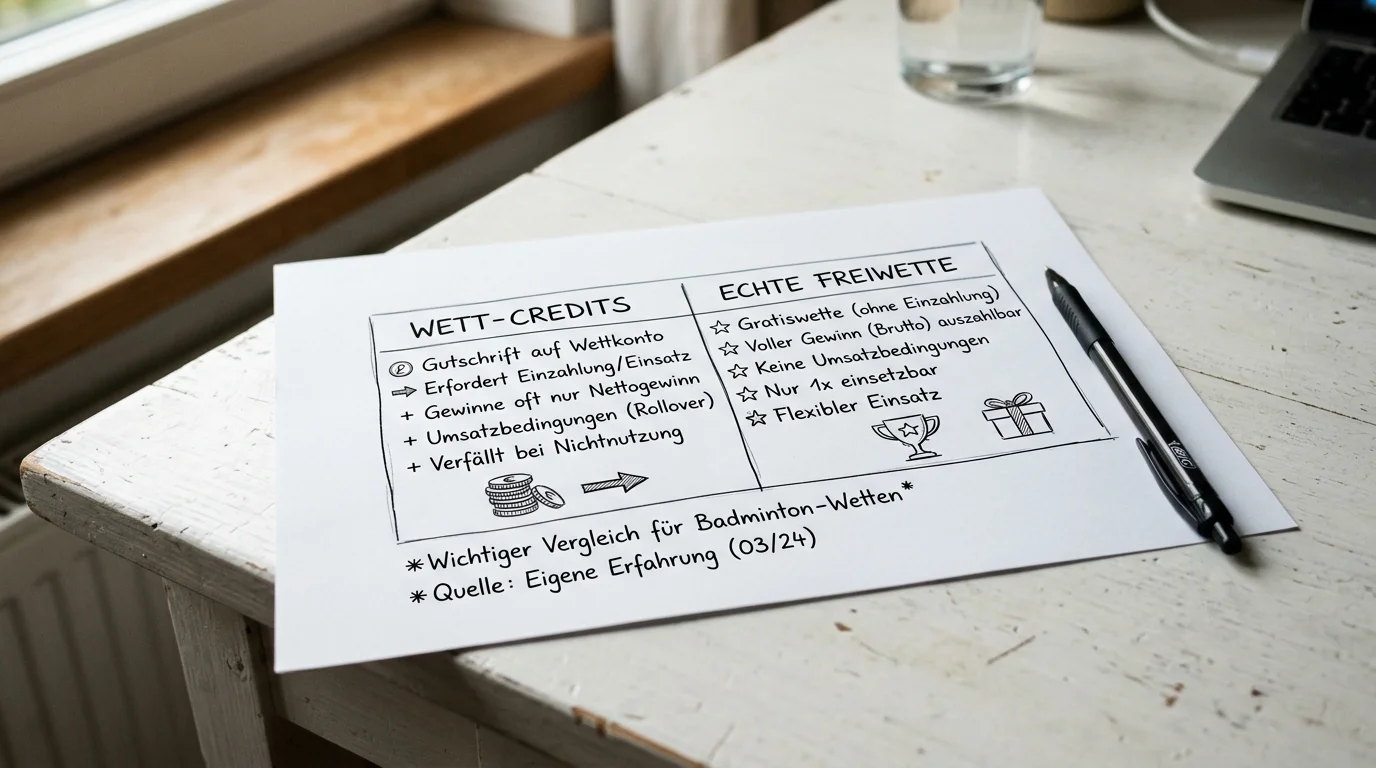 WETT-CREDITS
Gutschrift auf Wettkonto
→ Erfordert Einzahlung/Einsatz
+ Gewinne oft nur Nettogewinn
+ Umsatzbedingungen (Rollover)
+ Verfällt bei Nichtnutzung
ECHTE FREIWETTE
☆ Gratiswette (ohne Einzahlung)
☆ Voller Gewinn (Brutto) auszahlbar
☆ Keine Umsatzbedingungen
☆ Nur 1x einsetzbar
☆ Flexibler Einsatz
*Wichtiger Vergleich für Badminton-Wetten*
*Quelle: Eigene Erfahrung (03/24)